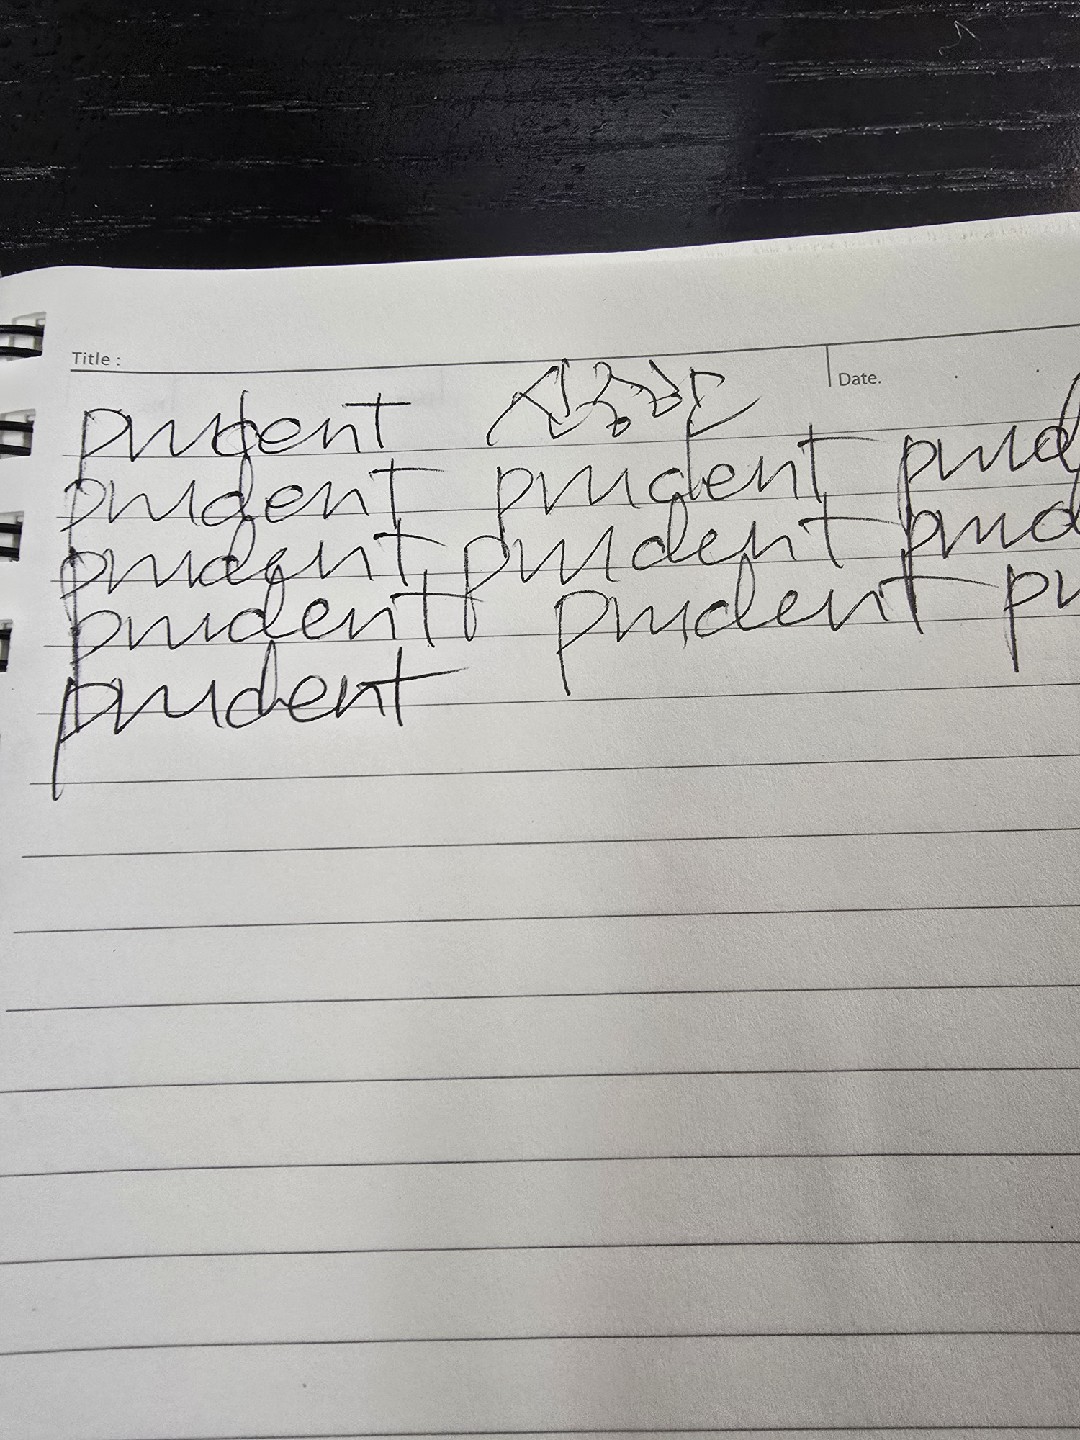 Title : Date.
prudent 신중한
prudent prudent prud
prudent prudent prud
prudent prudent pr
prudent